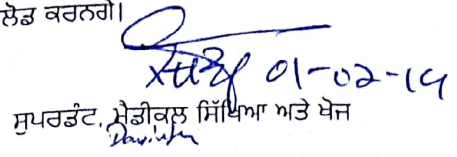 ਲੋਡ ਕਰਨਗੇ।
01-02-19
ਸੁਪਰਡੰਟ, ਮੈਡੀਕਲ ਸਿੱਖਿਆ ਅਤੇ ਖੋਜ